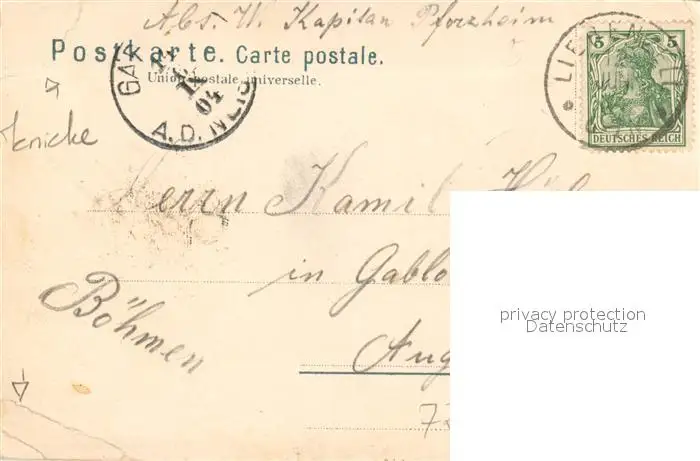 Abs. W. Kapitan Pforzheim
Postkarte. Carte postale.
Union postale universelle.
GA
IX
04
A.D. NEIS
LIEBEN
5 5
DEUTSCHES REICH
knicke
Herrn Kamil
in Gablo
Böhmen
Aug
privacy protection
Datenschutz